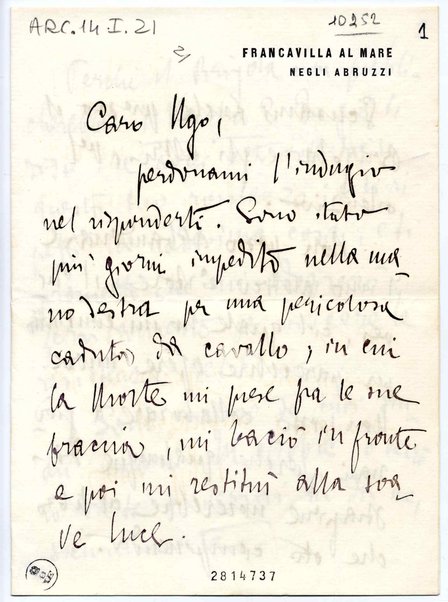 ARC. 14 I. 21
10252
1
FRANCAVILLA AL MARE
NEGLI ABRUZZI
Caro Ugo,
perdonami l'indugio
nel risponderti. Sono stato
più giorni impedito nella ma
no destra per una pericolosa
caduta da cavallo, in cui
la Morte mi prese fra le sue
braccia, mi baciò in fronte
e poi mi restituì alla soa
ve luce.
2814737